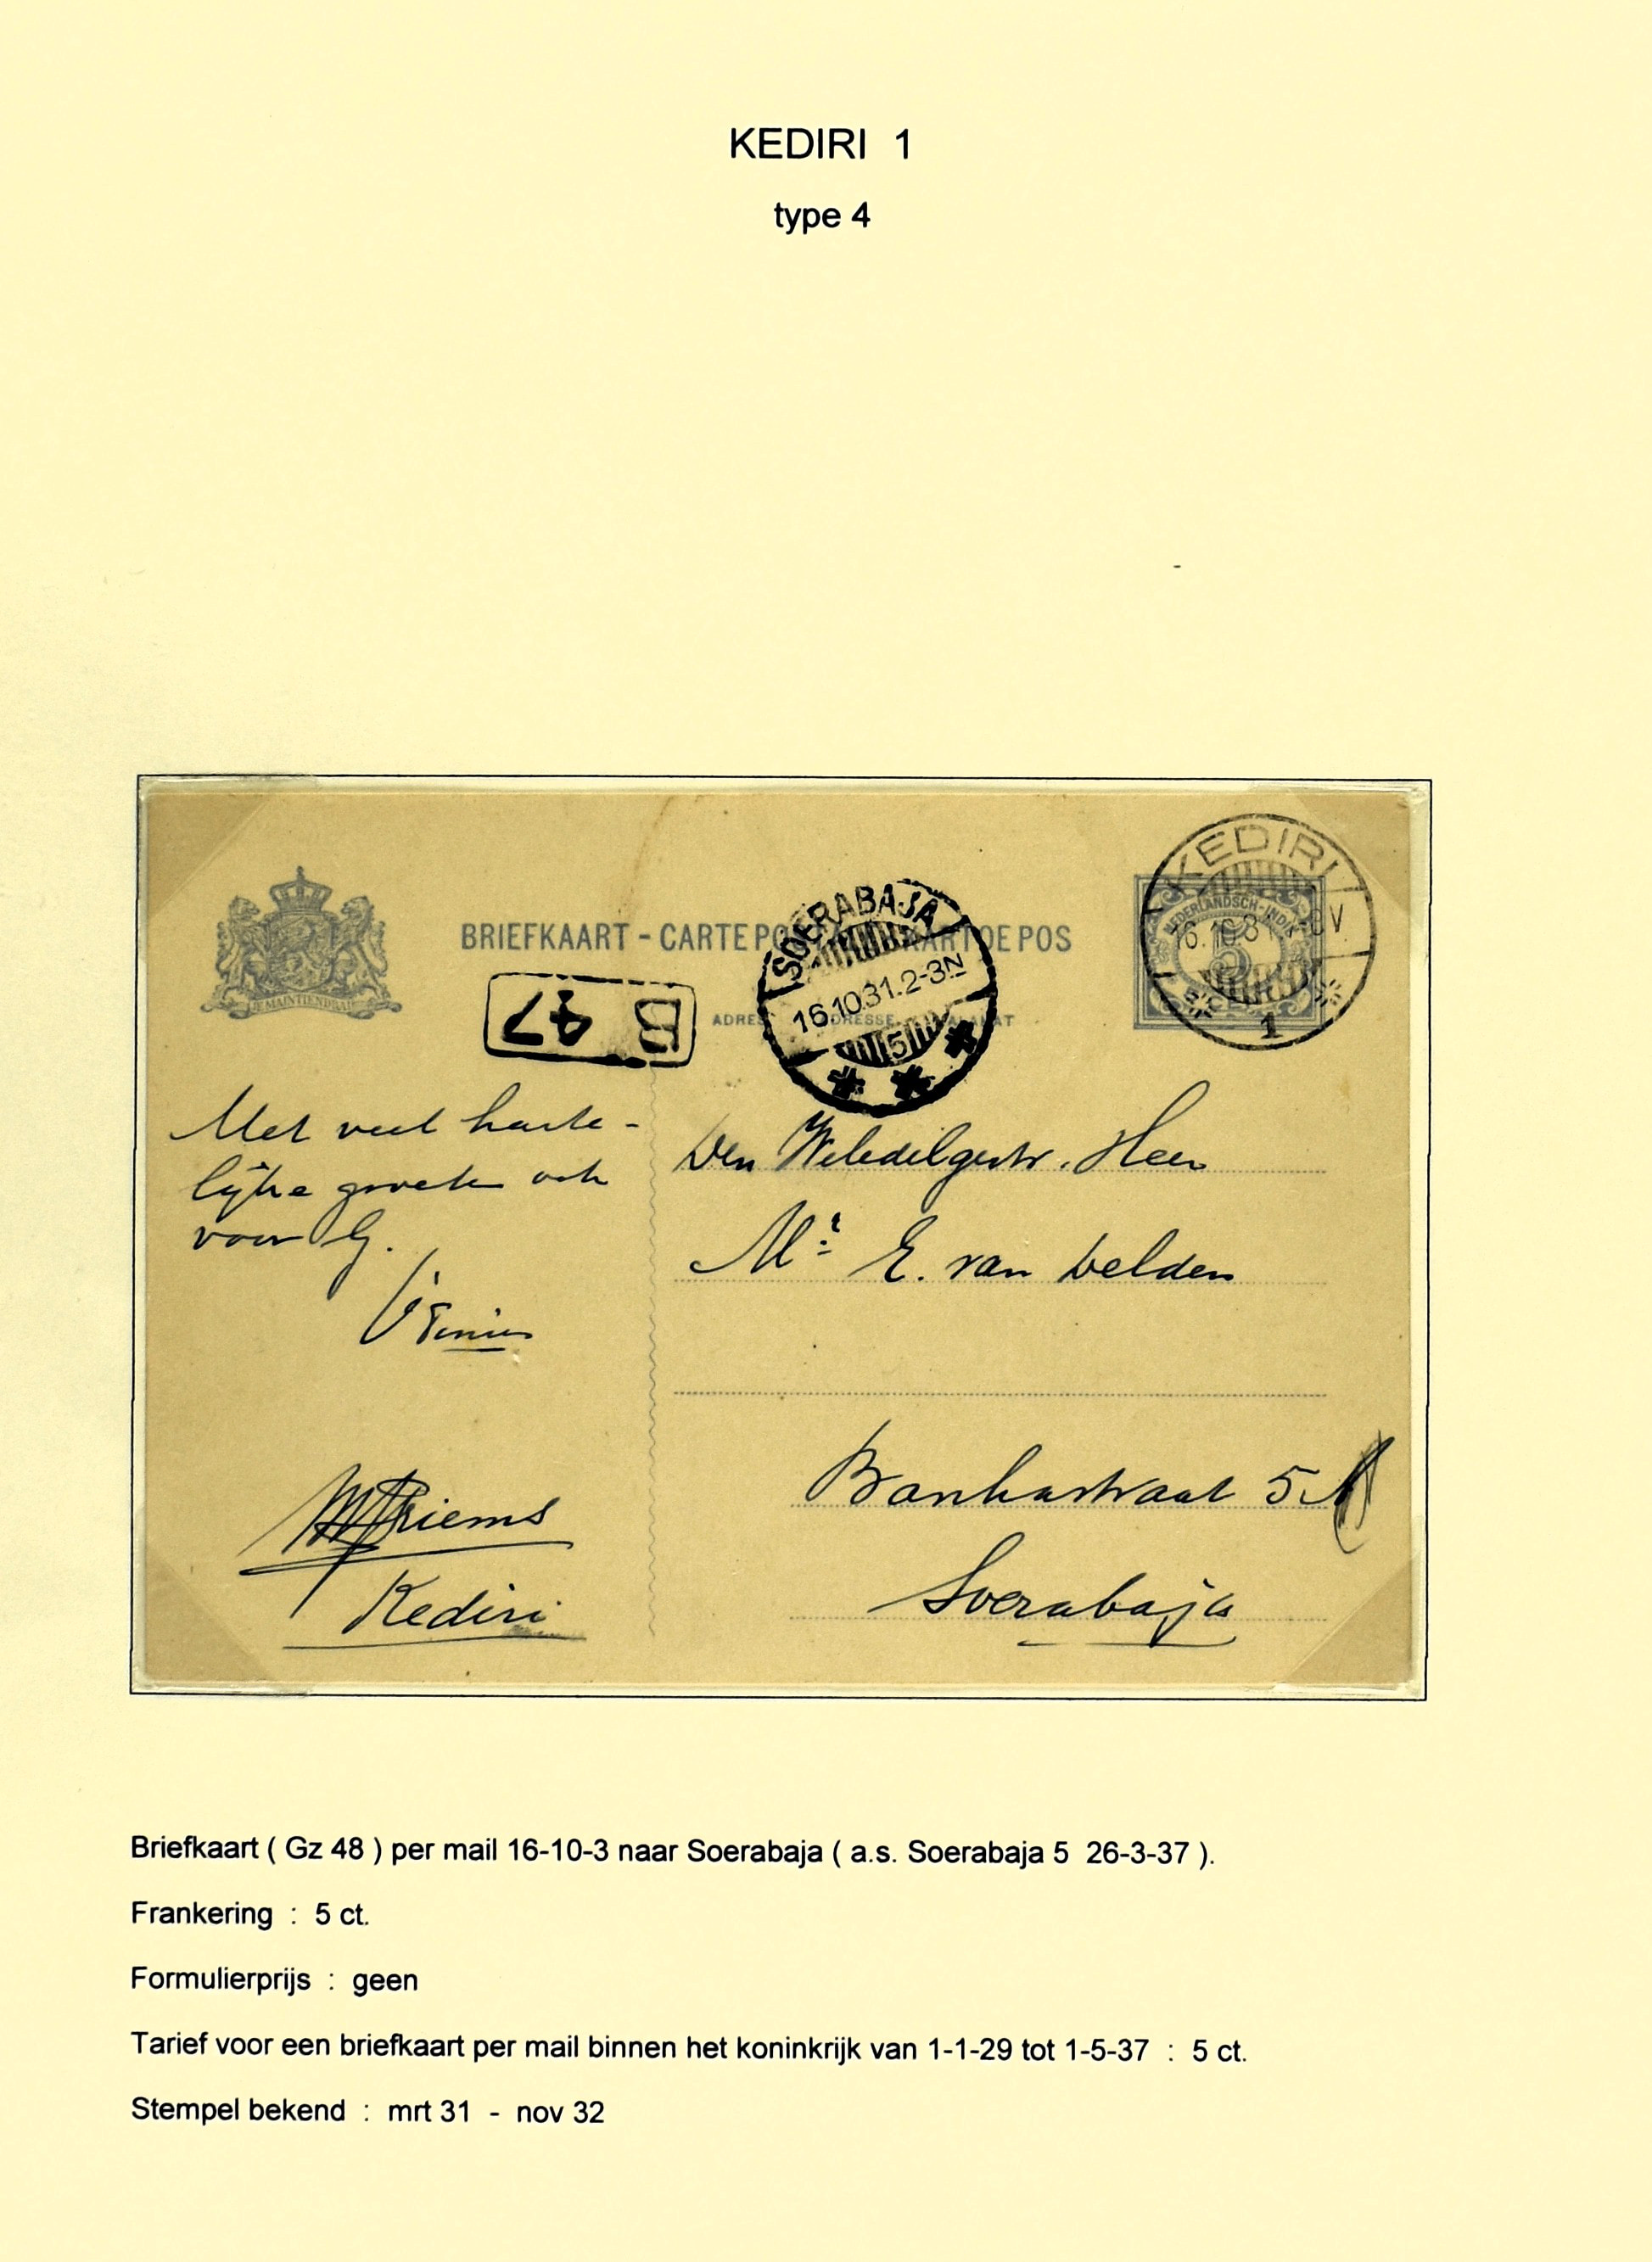 KEDIRI 1
type 4
KEDIRI
NEDERLANDSCH-INDIË
16.10.31
5
1
BRIEFKAART - CARTE POSTALE - KARTOE POS
JE MAINTIENDRAI
SOERABAJA
16.10.31.2-3N
5
B 47
ADRES ADRESSE ALAMAT
Met veel harte-
lijke groeten ook
voor G.
Den WelEdelgestr. Heer
Mr. E. van Delden
Kediri
Bankastraat 5
Soerabaja
Briefkaart ( Gz 48 ) per mail 16-10-3 naar Soerabaja ( a.s. Soerabaja 5 26-3-37 ).
Frankering : 5 ct.
Formulierprijs : geen
Tarief voor een briefkaart per mail binnen het koninkrijk van 1-1-29 tot 1-5-37 : 5 ct.
Stempel bekend : mrt 31 - nov 32